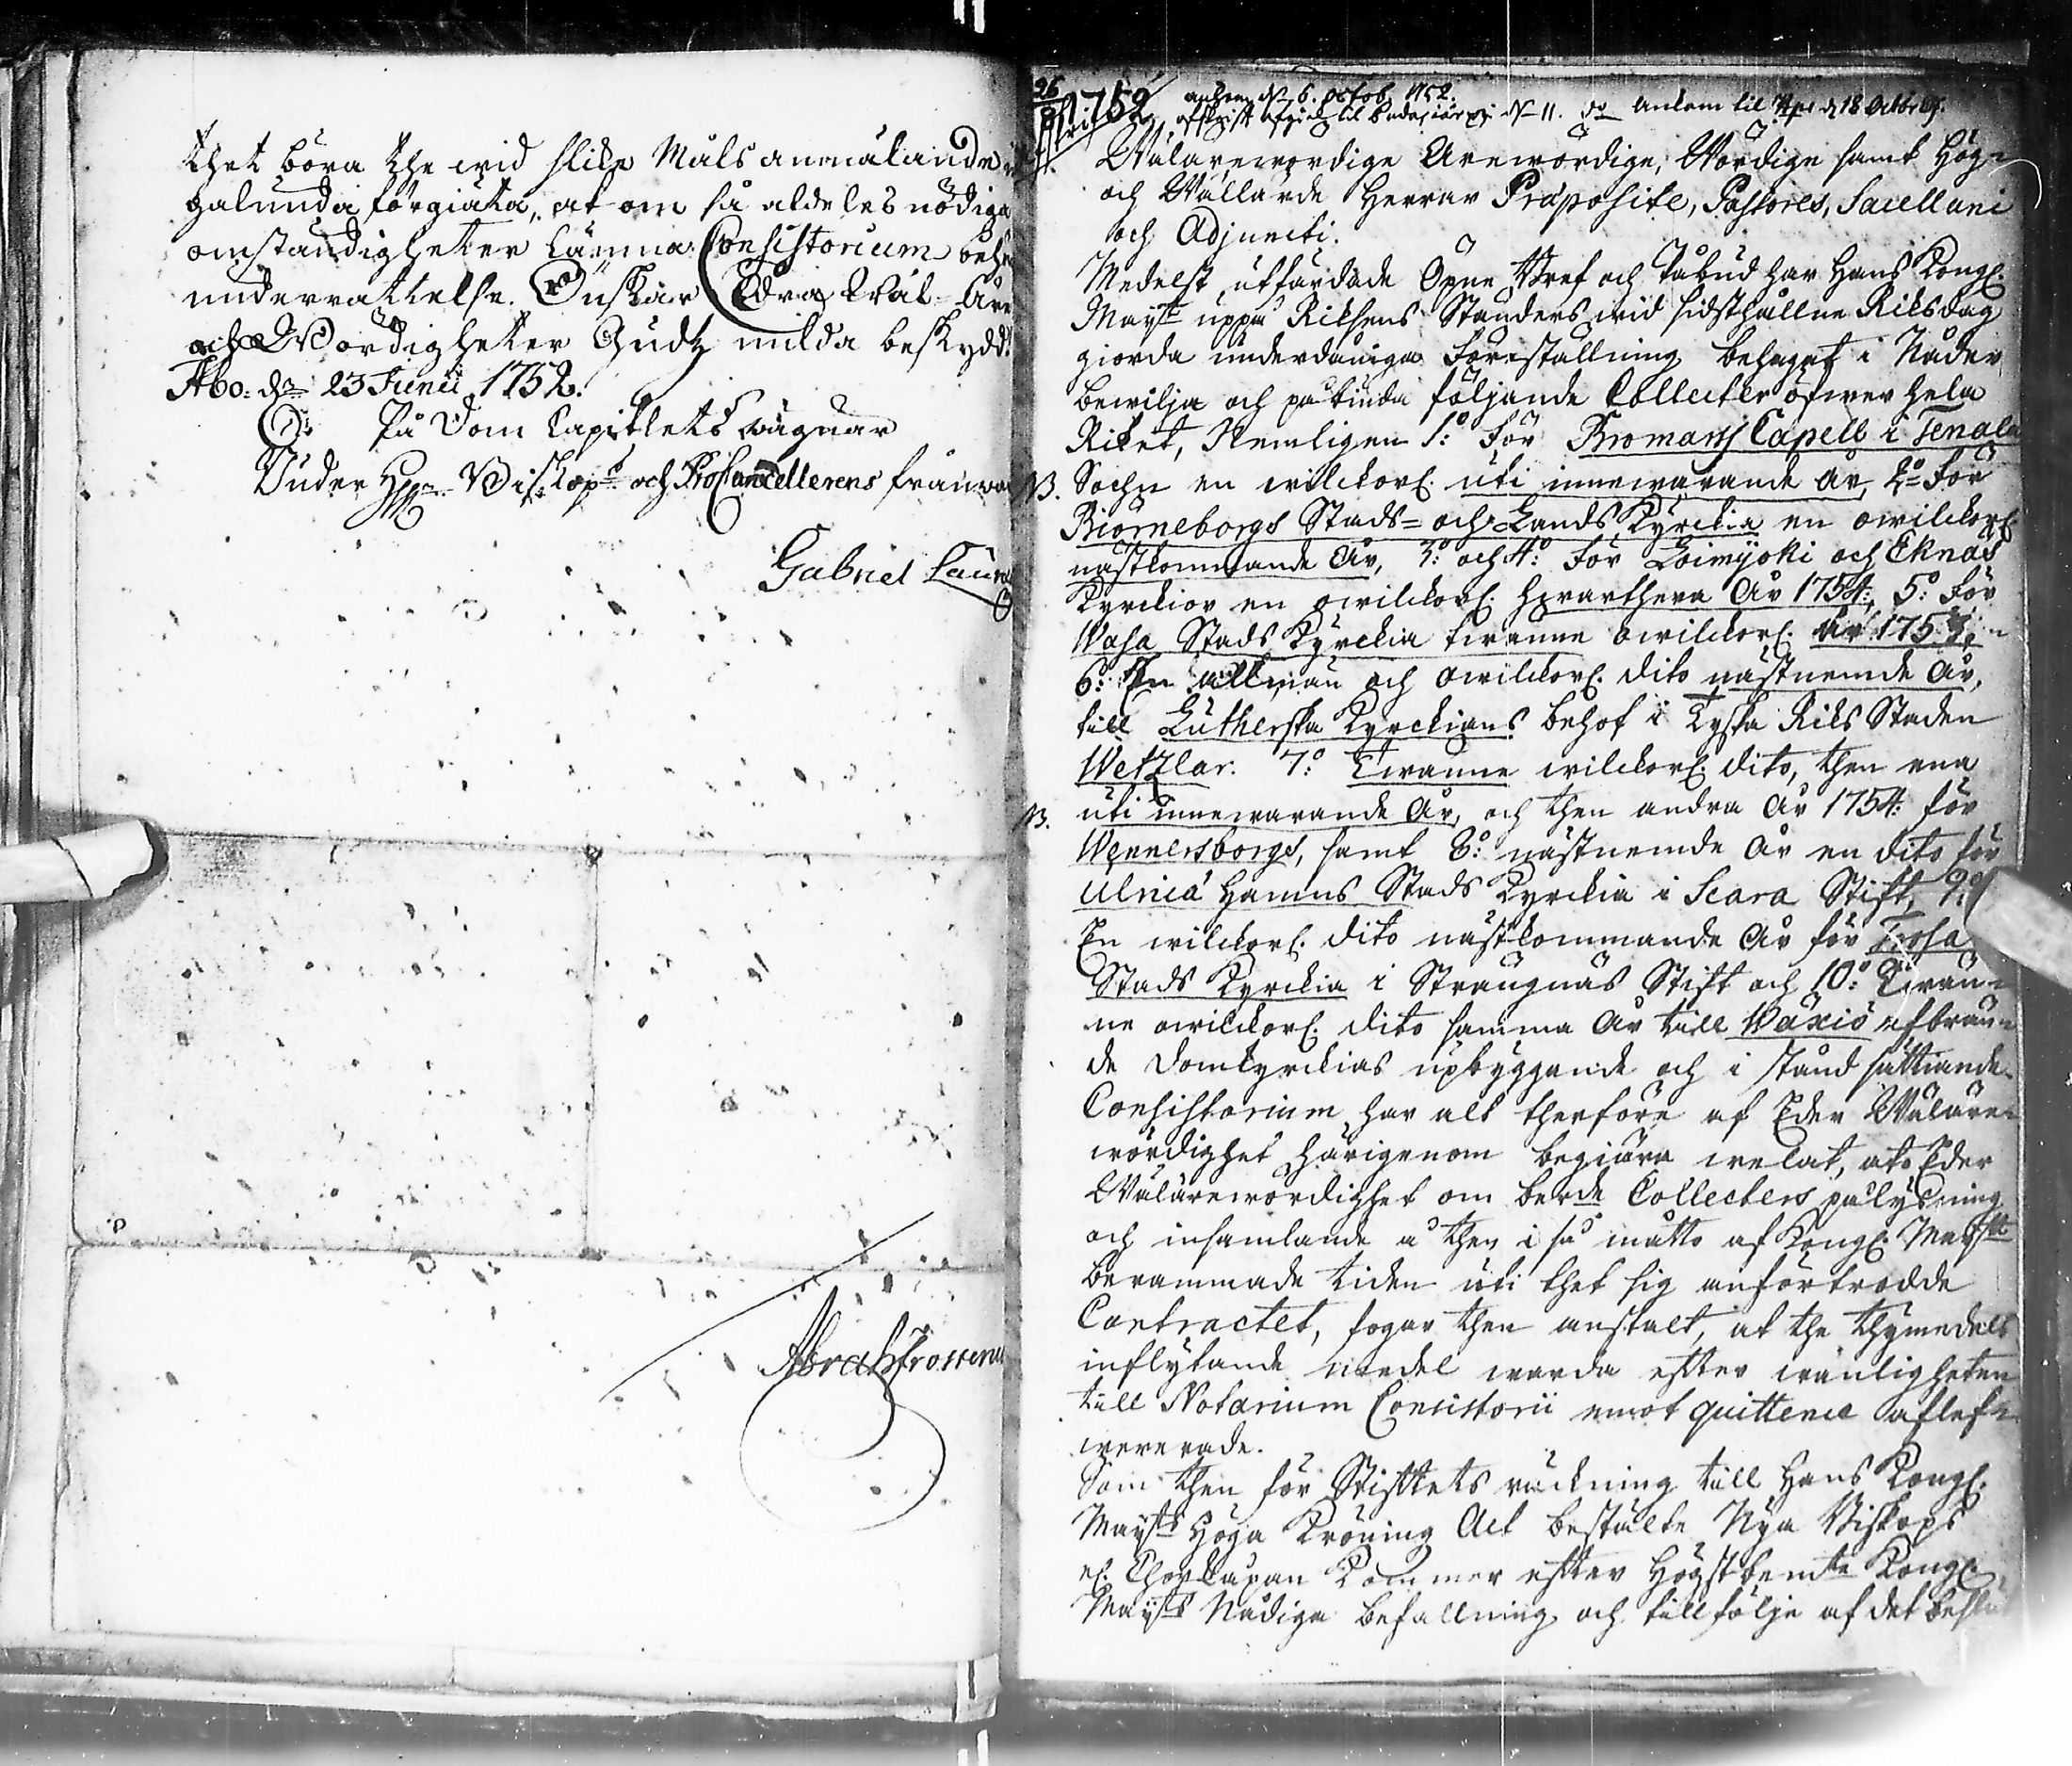 thet böra the wid slike Måls anmälande
galunda förgiäta, at om så aldeles nödiga
omständigheter lämna Consistorium behö
underrättelse. Önskar Edra Wäl-Äre
och Wördigheter Gudz milda beskydd.
Åbo. dn 23 Junii 1752.
På Dom Capitlets wägnar
Under Hrr Biskop och ProCancellerens frånwa
Gabriel Laur
Abrah Frosterus
26
1752 ankom dn 6. Octob. 1752.
afskrift afgick til dn 11. do Ankom til d 18 Octobr
Wälärewördige Ärewördige, Wördige samt Hög-
och Wällärde Herrar Præposite, Pastores, Sacellani
och Adjuncti.
Medelst utfärdade Öpne Bref och Påbud har Hans Kongl.
Mayst uppå Riksens Ständers wid sidsthållne Riksdag
giorda underdåniga Föreställning behagat i Nåder
bewilja och påbiuda följande Collecter öfwer hela
Riket, Nemligen 1:o För Bromarfs Capell i Tenala
NB. Sochn en wilckorl. uti innewarande år, 2:o För
Biörneborgs Stads- och Lands Kyrckia en owilckorl.
nästkommande År, 3:o och 4:o För Loimijoki och Eknäs
Kyrckior en owilckorl. hwarthera År 1754:, 5:o För
Wasa Stads Kyrckia twänne owilckorl. År 175
6:o En allmän och owilckorl. dito nästnemde År,
till Lutherska Kyrckians behof i Tyska Riks Staden
Wetzlar. 7:o Twänne wilckorl. dito, then ena
NB. uti innewarande År, och then andra År 1754: för
Wennersborgs, samt 8:o nästnemde År en dito för
Ulricæ Hamns Stads Kyrckia i Scara Stift, 9:o
En wilckorl. dito nästkommande År för Trosa
Stads Kyrckia i Strängnäs Stift och 10:o Twän-
ne owilckorl. dito samma År till Wäxiö afbrän
de Domkyrckias upbyggande och i stånd sättiande
Consistorium har alt therföre af Eder Wäläre-
wördighet härigenom begiära welat, at Eder
Wälärewördighet om berde Collecters pålysning
och insamlande å then i så måtto af Kongl. Mayst
berammade tiden uti thet sig anförtrodde
Contractet, fogar then anstalt, at the thymedels
inflytande medel warda efter wanligheten
till Notarium Consistorii emot quittence aflef-
wererade.
Som then för Stiftets räckning till Hans Kongl.
Mayts Höga Kröning Act bestälte Nya Biskops
el. Chorkåpan kommer efter Högstbemte Kongl.
Mayts Nådiga befallning och till följe af det beslu